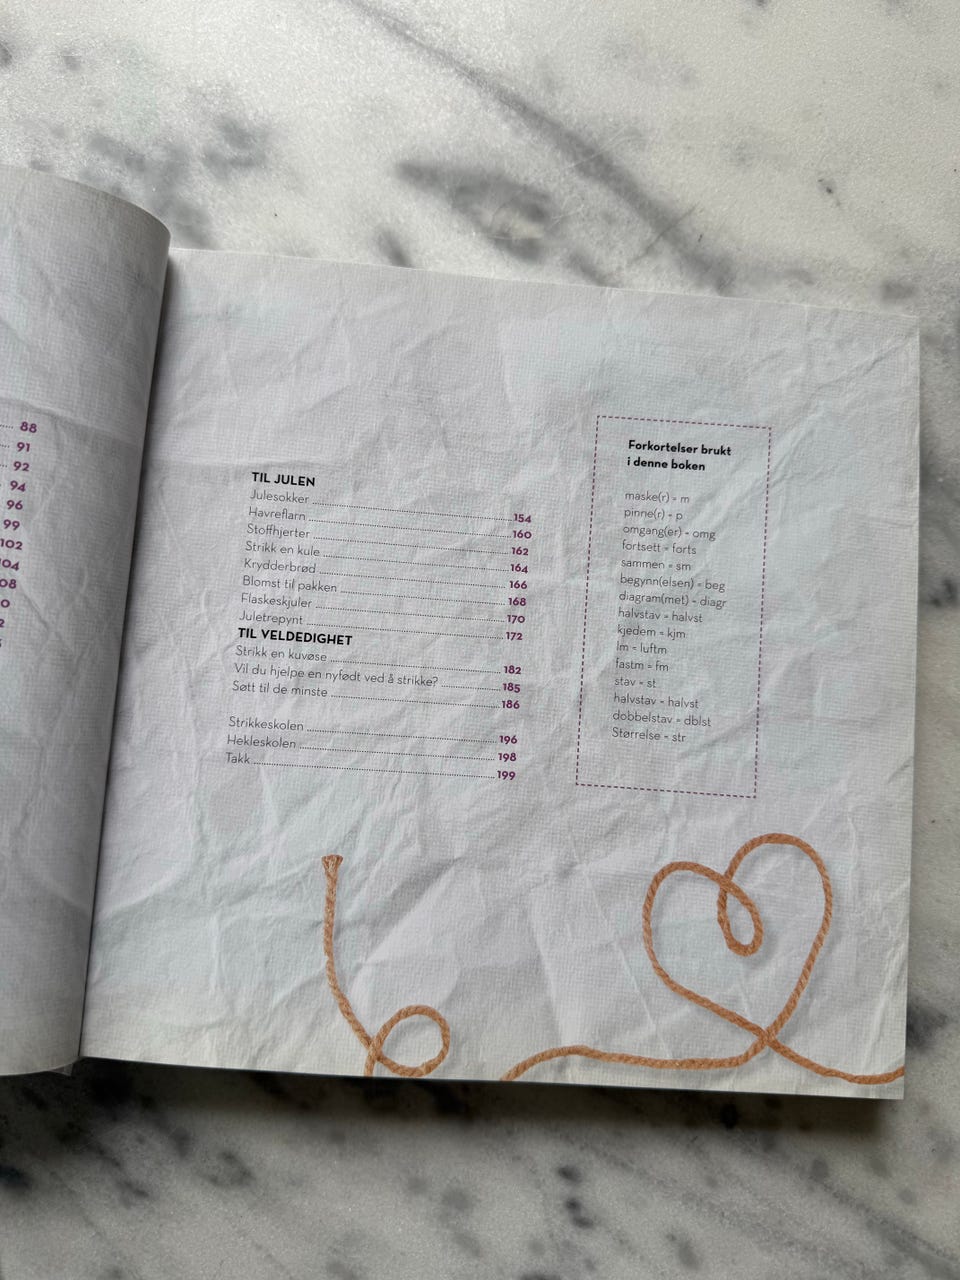 88
91
92
94
96
99
102
104
TIL JULEN
Julesokker 154
Havreflarn 160
Stoffhjerter 162
Strikk en kule 164
Krydderbrød 166
Blomst til pakken 168
Flaskeskjuler 170
Juletrepynt 172
TIL VELDEDIGHET
Strikk en kuvøse 182
Vil du hjelpe en nyfødt ved å strikke? 185
Søtt til de minste 186
Strikkeskolen 196
Hekleskolen 198
Takk 199
Forkortelser brukt
i denne boken
maske(r) = m
pinne(r) = p
omgang(er) = omg
fortsett = forts
sammen = sm
begynn(elsen) = beg
diagram(met) = diagr
halvstav = halvst
kjedem = kjm
lm = luftm
fastm = fm
stav = st
halvstav = halvst
dobbelstav = dblst
Størrelse = str